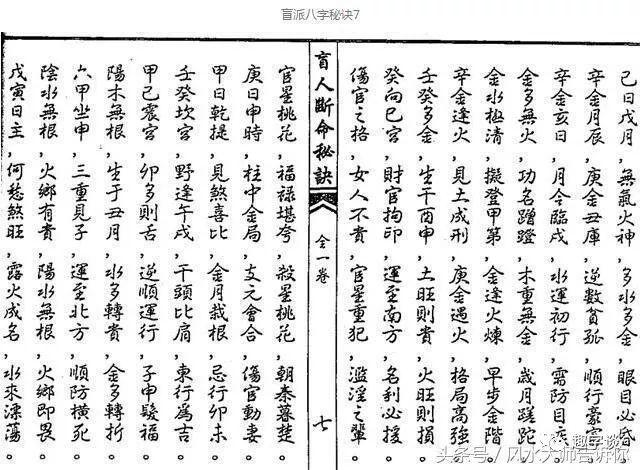 盲派八字秘诀7
己日戌月,無氣火神,多水多金,眼目必昏。
辛金月辰,庚金丑庫,逆數貧孤,順行豪
辛金亥日,月令臨戌,水運初行,需防目疾
金多無火,功名蹭蹬,木重無金,歲月蹉跎。
金水極清,擬登甲第,金逢火煉,早步金階。
辛金逢火,見土成刑,庚金遇火,格局高強。
壬癸多金,生于酉申,土旺則貴,火旺則損。
癸向巳宮,財官拘印,運至南方,名利必援。
傷官之格,女人不貴,官星重犯,濫淫之輩。
盲人斷命秘訣 全一卷 七
官星桃花,福祿堪夸,殺星桃花,朝秦暮楚。
庚日申時,柱中金局,支元會合,傷官動妻。
甲日乾提,見煞喜比,金月栽根,忌行卯未。
壬癸坎宮,野逢午戌,干頭比肩,東行為吉。
甲己震宮,卯多則舌,逆順運行,子申發福。
陽木無根,生于丑月,水多轉貴,金多轉折。
六甲坐申,三重見子,運至北方,順防橫死。
陰水無根,火鄉有貴,陽水無根,火鄉即畏。
戊寅日主,何愁煞旺,露火成名,水來漂蕩。
头条号 / 风水大师告诉你